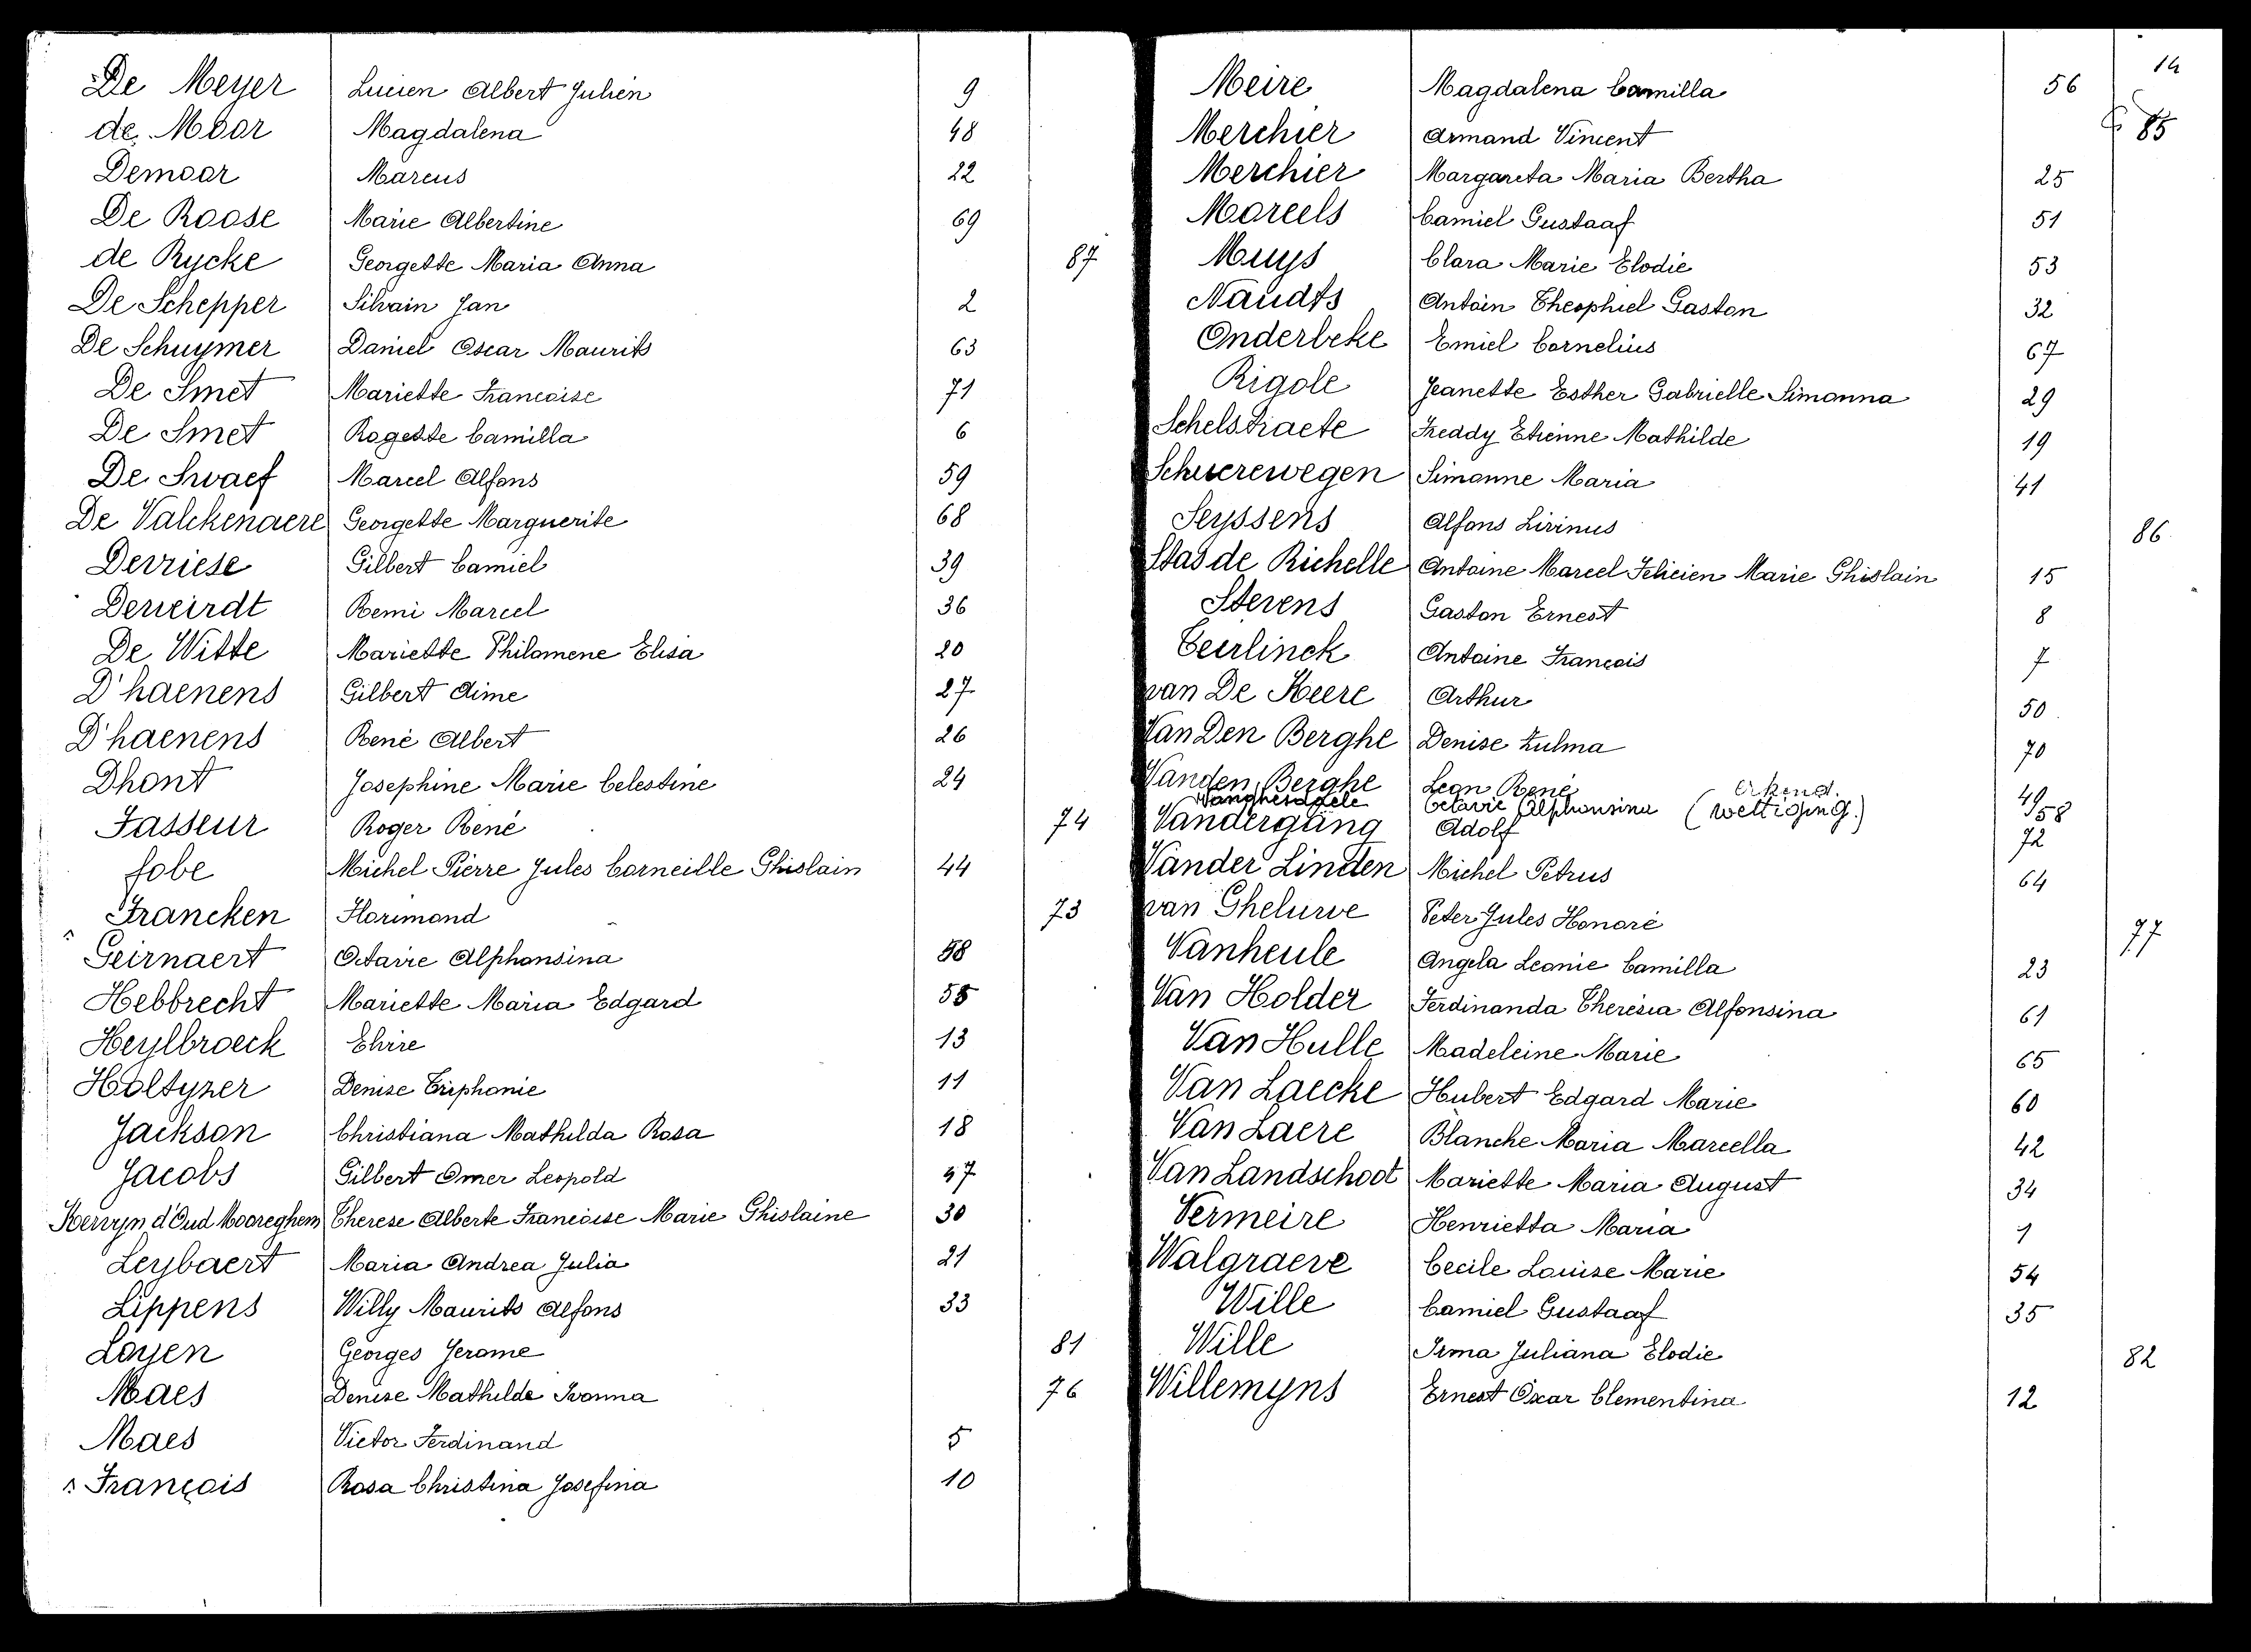 De Meyer Lucien Albert Julien 9
de Moor Magdalena 48
Demoor Marcus 22
De Roose Marie Albertine 69
de Rycke Georgette Maria Anna 87
De Schepper Silvain Jan 2
De Schuymer Daniel Oscar Maurits 63
De Smet Mariette Francoise 71
De Smet Rogette Camilla 6
De Swaef Marcel Alfons 59
De Valckenaere Georgette Marguerite 68
Devriese Gilbert Camiel 39
Deweirdt Remi Marcel 36
De Witte Mariette Philomene Elisa 20
D'haenens Gilbert Aime 27
D'haenens René Albert 26
Dhont Josephine Marie Celestine 24
Fasseur Roger René 74
fobe Michel Pierre Jules Corneille Ghislain 44
Francken Florimond 73
Geirnaert Octavie Alphonsina 58
Hebbrecht Mariette Maria Edgard 55
Heylbroeck Elvire 13
Holtyzer Denise Triphonie 11
Jackson Christiana Mathilda Rosa 18
Jacobs Gilbert Omer Leopold 47
Kervyn d'Oud Mooreghem Therese Alberte Francoise Marie Ghislaine 30
Leybaert Maria Andrea Julia 21
Lippens Willy Maurits Alfons 33
Loyen Georges Jerome 81
Maes Denise Mathilde Ivonna 76
Maes Victor Ferdinand 5
François Rosa Christina Josefina 10
14
Meire Magdalena Camilla 56
Merchier Armand Vincent 85
Merchier Margareta Maria Bertha 25
Moreels Camiel Gustaaf 51
Muys Clara Marie Elodie 53
Naudts Antoin Theophiel Gaston 32
Onderbeke Emiel Cornelius 67
Rigole Jeanette Esther Gabrielle Simonna 29
Schelstraete Freddy Etienne Mathilde 19
Schuerewegen Simonne Maria 41
Seyssens Alfons Livinus 86
Stas de Richelle Antoine Marcel Felicien Marie Ghislain 15
Stevens Gaston Ernest 8
Teirlinck Antoine Francois 7
van De Keere Arthur 50
Van Den Berghe Denise Zulma 70
Vanden Berghe Leon René 49
Octavie Alphonsina (Erkend. wettiging.) 58
Vandergang Adolf 72
Vander Linden Michel Petrus 64
van Gheluwe Peter Jules Honoré 77
Vanheule Angela Leonie Camilla 23
Van Holder Ferdinanda Theresia Alfonsina 61
Van Hulle Madeleine Marie 65
Van Laecke Hubert Edgard Marie 60
Van Laere Blanche Maria Marcella 42
Van Landschoot Mariette Maria August 34
Vermeire Henrietta Maria 1
Walgraeve Cecile Louise Marie 54
Wille Camiel Gustaaf 35
Wille Irma Juliana Elodie 82
Willemyns Ernest Oscar Clementina 12